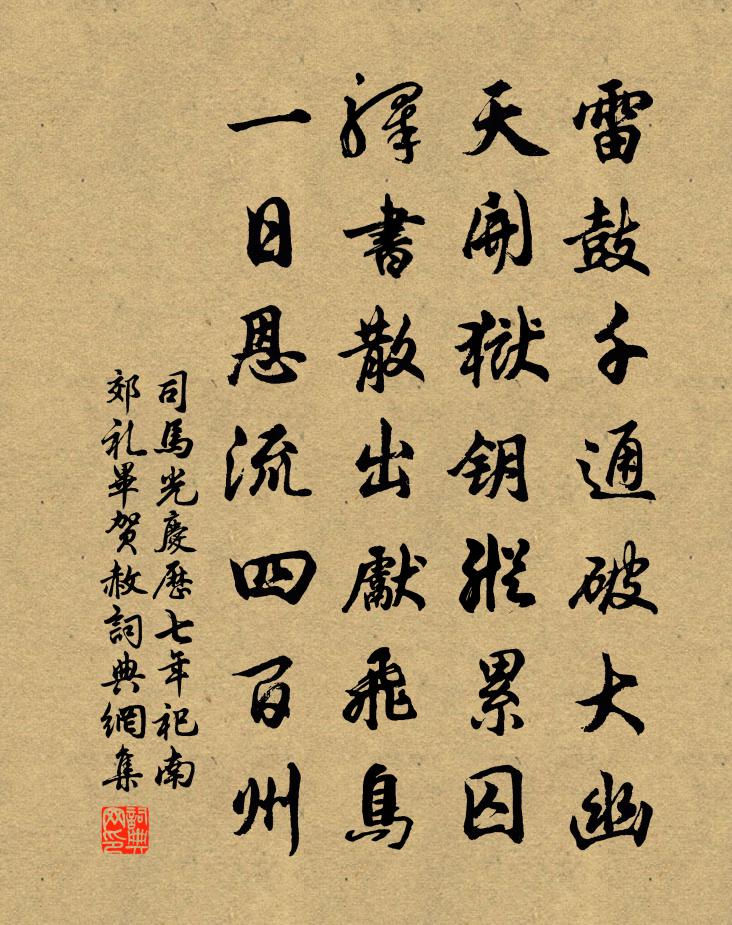 雷鼓千通破大幽
天開獄钥縱累囚
驛書散出獻飛鳥
一日恩流四百州
司馬光慶歷七年祀南
郊礼畢贺赦詞典網集
詞典网印